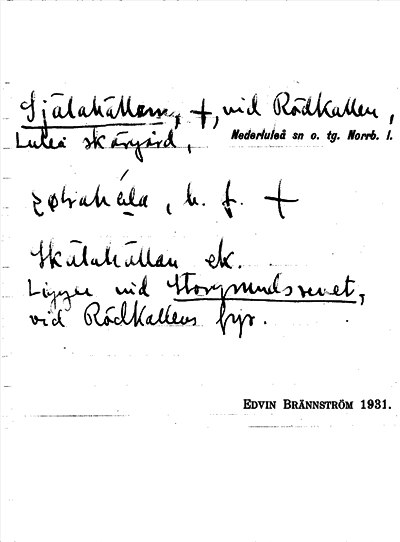 Själahällan, +, vid Rödkallen,
Luleå skärgård, Nederluleå sn o. tg. Norrb. l.
b. f. +
Skälahällan ek.
Ligger vid Storgrundsrevet,
vid Rödkallens fyr.
EDVIN BRÄNNSTRÖM 1931.